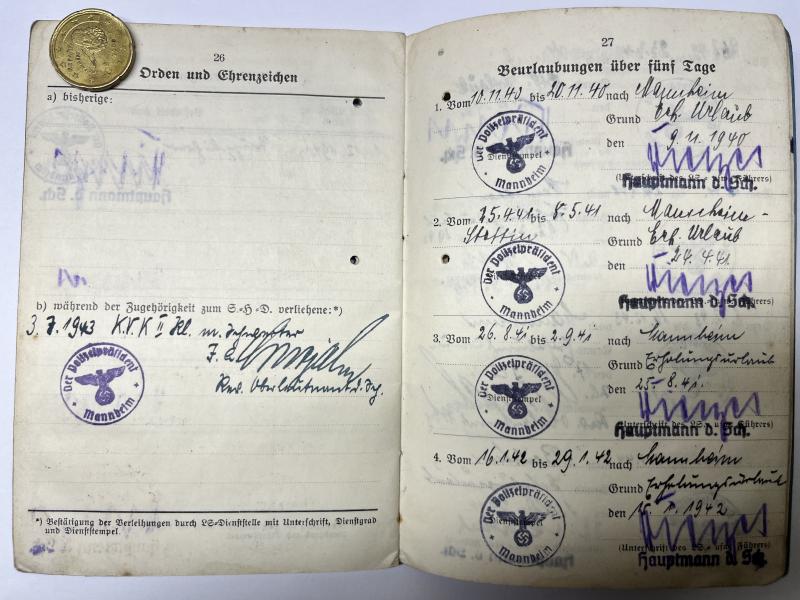 26
Orden und Ehrenzeichen
a) bisherige:
b) während der Zugehörigkeit zum S.-H.-D. verliehene:*)
3. 7. 1943 K.V.K II Kl. m. Schwerter
Rev. Oberleutnant d. Sch.
Der Polizeipräsident
Mannheim
*) Bestätigung der Verleihungen durch LS-Dienststelle mit Unterschrift, Dienstgrad
und Dienststempel.
27
Beurlaubungen über fünf Tage
1. Vom 10.11.40 bis 20.11.40 nach Mannheim
Grund Erh. Urlaub
den 9.11.1940
Der Polizeipräsident
Dienststempel
Mannheim
(Unterschrift des LS- usw. Führers)
Hauptmann d. Sch.
2. Vom 25.4.41 bis 8.5.41 nach Mannheim-
Stettin
Grund Erh. Urlaub
den 24.4.41
Der Polizeipräsident
Mannheim
Hauptmann d. Sch.
3. Vom 26.8.41 bis 2.9.41 nach Mannheim
Grund Erholungsurlaub
den 25.8.41.
Der Polizeipräsident
Dienststempel
Mannheim
(Unterschrift des LS- usw. Führers)
Hauptmann d. Sch.
4. Vom 16.1.42 bis 29.1.42 nach Mannheim
Grund Erholungsurlaub
den 15. 1942
Der Polizeipräsident
Dienststempel
Mannheim
(Unterschrift des LS- usw. Führers)
Hauptmann d. Sch.